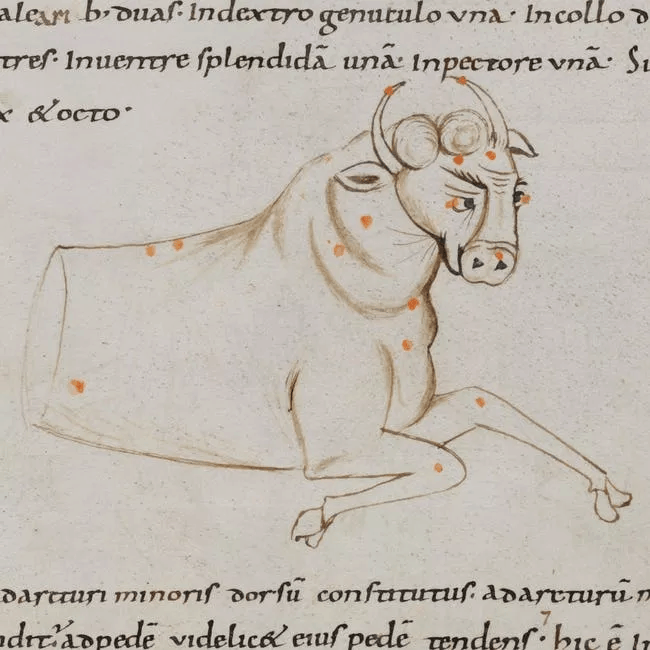 aleari b; duas· In dextro genuculo una· In collo d
tres· Inuentre splendidā unā· Inpectore unā· Su
x &octo·
adarcturi minoris dorsū constitutus· adarcturū m
ndit· adpedē videlic& eius pedē tendens· hic ē In
7